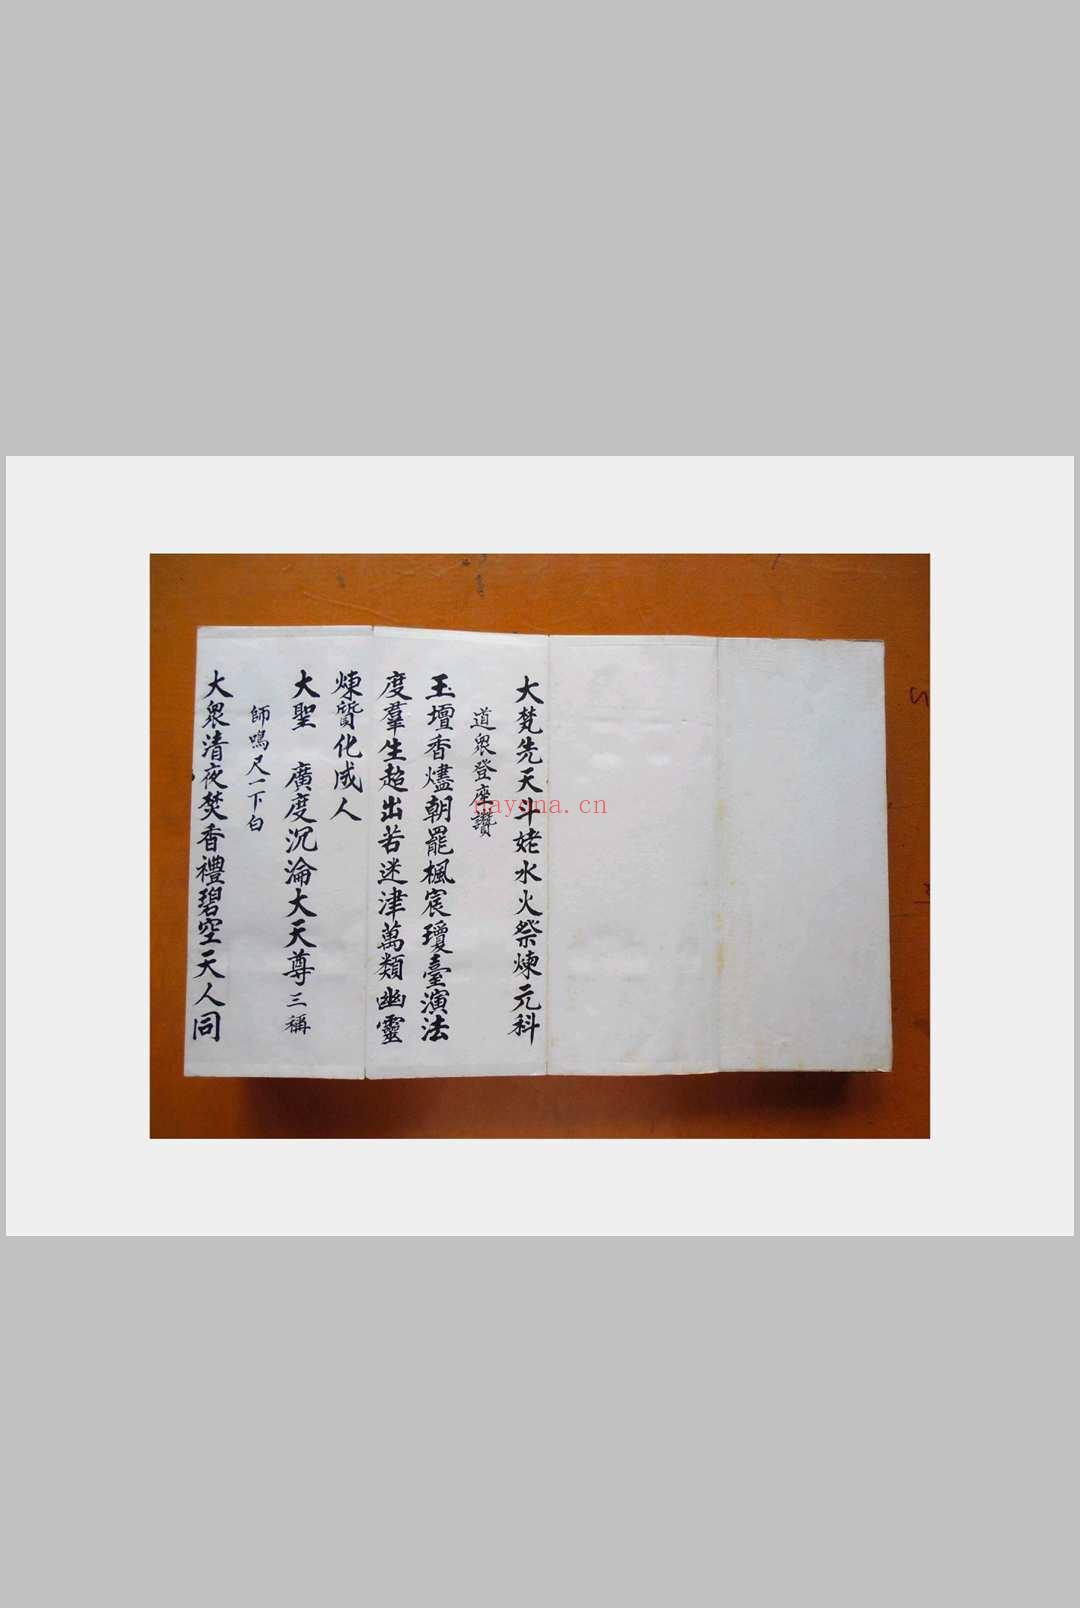 大梵先天斗姥水火祭煉元科
道眾登座讚
玉壇香燼朝罷楓宸瓊臺演法
度羣生超出若迷津萬類幽靈
煉質化成人
大聖 廣度沉淪大天尊三稱
師鳴尺一下白
大眾清夜焚香禮碧空天人同
nayona.cn